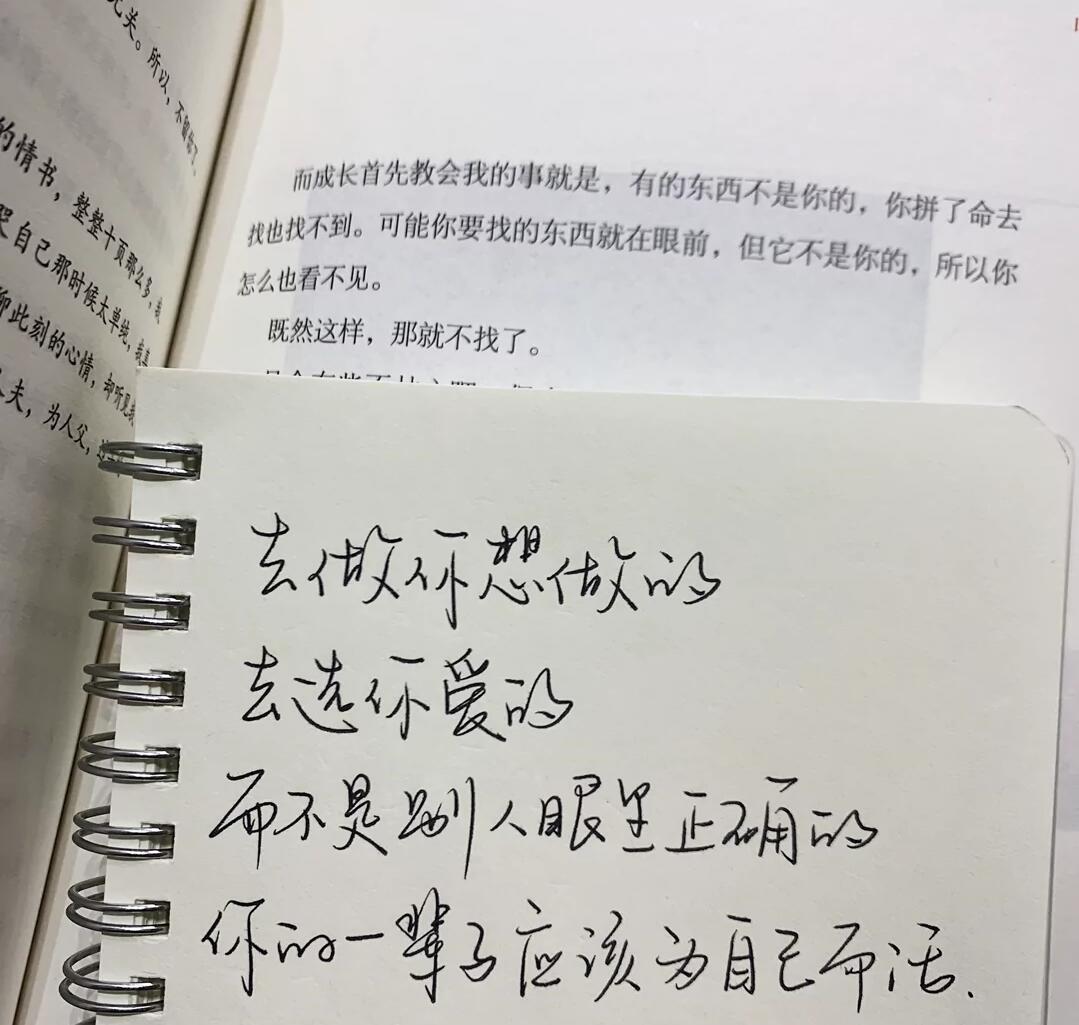 无关。所以,不留你了。
的情书,整整十页那么多,我
自己那时候太单纯,我
聊此刻的心情,却听见我
夫,为人父,
而成长首先教会我的事就是,有的东西不是你的,你拼了命去
找也找不到。可能你要找的东西就在眼前,但它不是你的,所以你
怎么也看不见。
既然这样,那就不找了。
去做你想做的
去选你爱的
而不是别人眼里正确的
你的一辈子应该为自己而活.